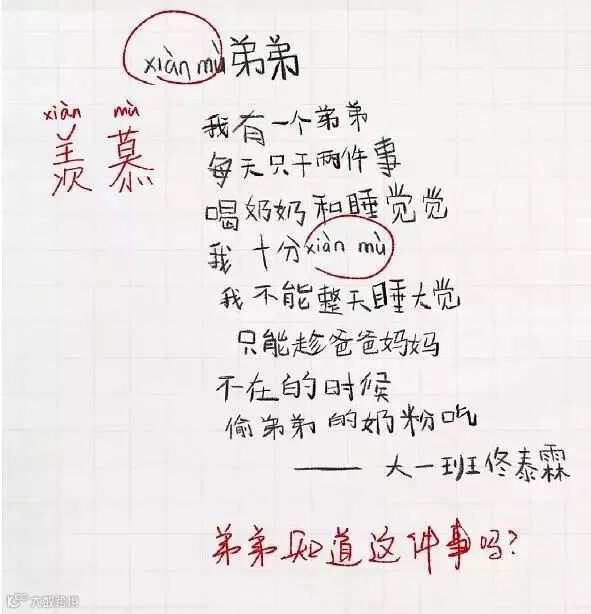 xiàn mù弟弟
xiàn mù
羡慕
我有一个弟弟
每天只干两件事
喝奶奶和睡觉觉
我十分xiàn mù
我不能整天睡大觉
只能趁爸爸妈妈
不在的时候
偷弟弟的奶粉吃
—— 大一班佟泰霖
弟弟知道这件事吗？
大数跨境